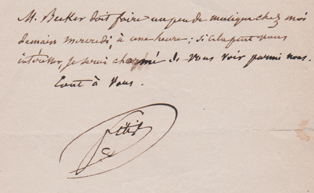 M. Becker doit faire un peu de musique chez moi
demain mercredi, à une heure; si cela peut vous
intéresser, je serai charmé de vous voir parmi nous.
Tout à vous.
Fétis